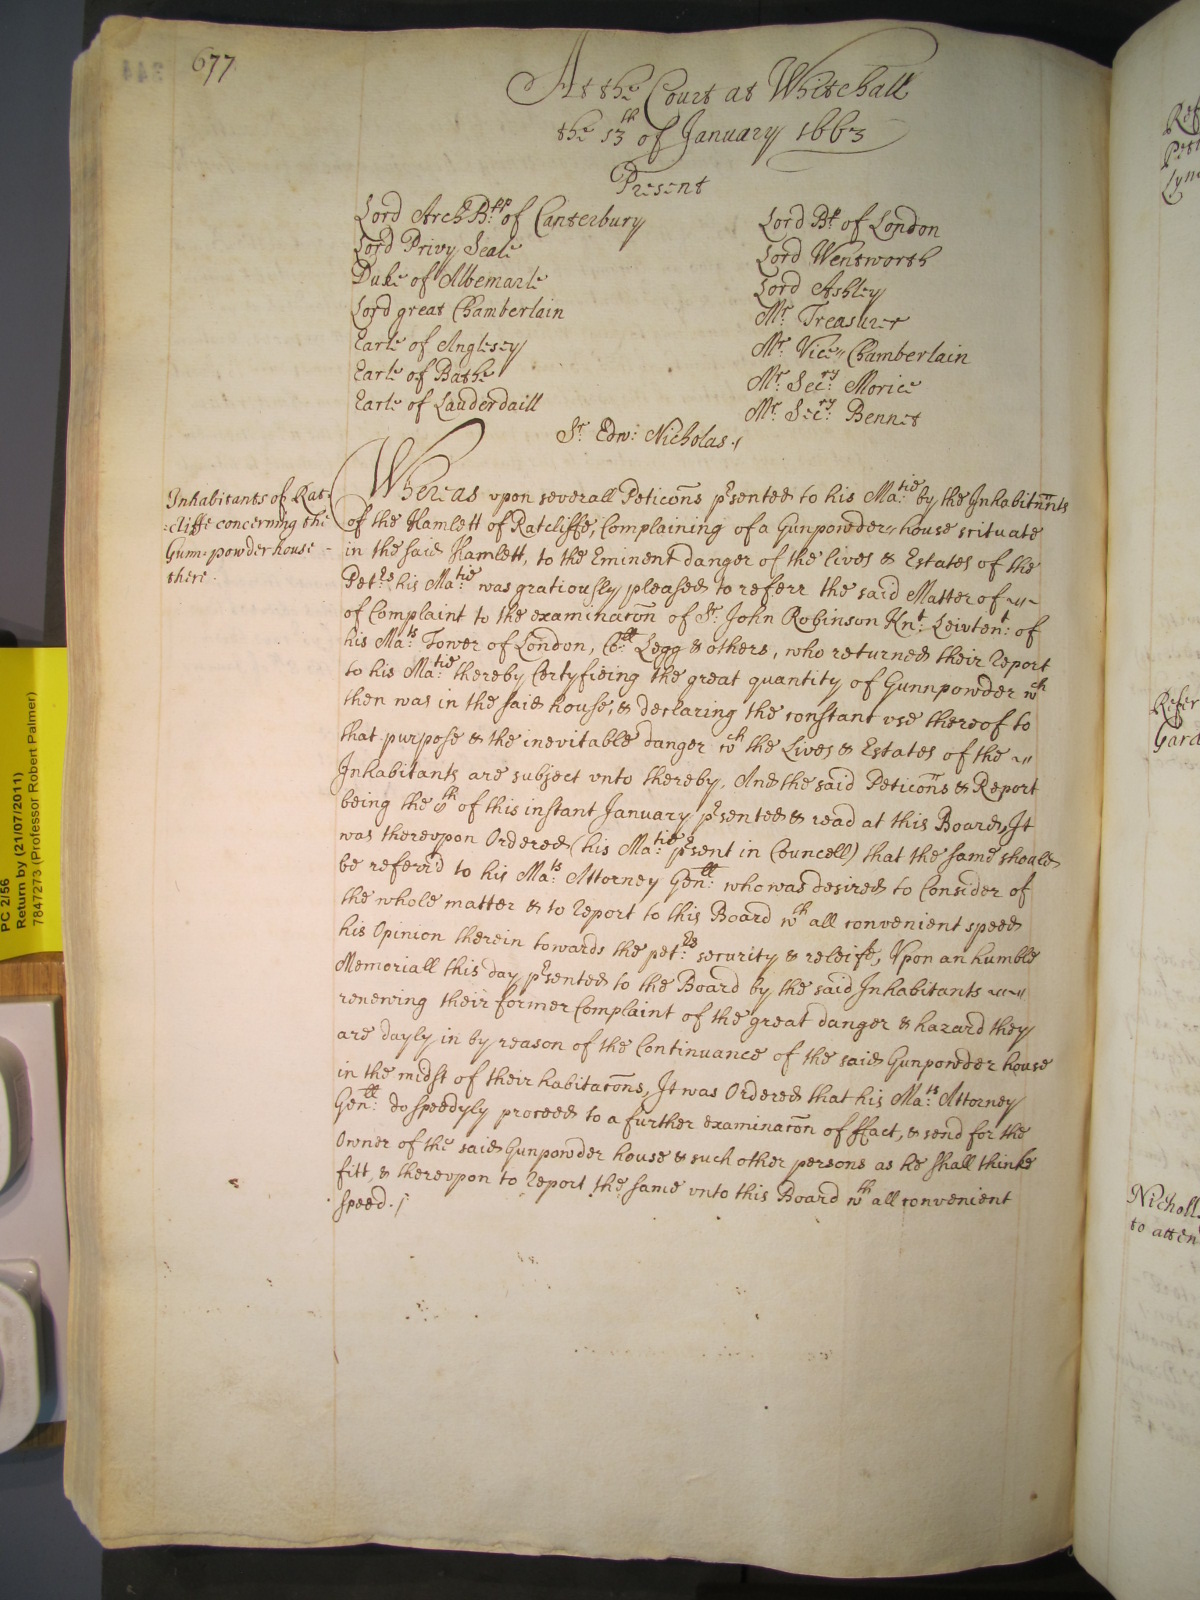 677
At the Court at Whitehall
the 13th of January 1663
Present
Lord ArchBpp of Canterbury
Lord Privy Seale
Duke of Albemarle
Lord great Chamberlain
Earle of Anglesey
Earle of Bathe
Earle of Lauderdaill
Lord Bp of London
Lord Wentworth
Lord Ashley
Mr Treasurer
Mr Vice Chamberlain
Mr Secry: Morice
Mr Secry: Bennet
Sr Edw: Nicholas./
Inhabitants of Rat-
:cliffe concerning the
Gunn-powder house -
there.
Whereas vpon severall Peticõns p'sented to his Matie: by the Inhabitants
of the Hamlett of Ratcliffe, Complaining of a Gunpowder-house scituate
in the said Hamlett, to the Eminent danger of the lives & Estates of the
Petrs: his Matie: was gratiously pleased to referr the said Matter of
of Complaint to the examinacõn of Sr John Robinson Knt: Leivtent: of
his Mats: Tower of London, Coll: Legg & others, who returned their report
to his Matie: thereby Certyfieing the great quantity of Gunnpowder wch
then was in the said house, & declaring the constant vse thereof to
that purpose & the inevitable danger wch the Lives & Estates of the
Inhabitants are subject vnto thereby, And the said Peticõns & Report
being the 8th of this instant January p'sented & read at this Board, It
was therevpon Ordered (his Matie: p'sent in Councell) that the same should
be referr'd to his Mats: Attorney Genll: who was desired to Consider of
the whole matter & to report to this Board wth all convenient speed
his Opinion therein towards the petrs: security & releife, Vpon an humble
Memoriall this day p'sented to the Board by the said Inhabitants
renewing their former Complaint of the great danger & hazard they
are dayly in by reason of the Continuance of the said Gunpowder house
in the midst of their habitacõns, It was Ordered that his Mats: Attorney
Genll: do speedyly proceed to a further examinacõn of ffact, & send for the
Owner of the said Gunpowder house & such other persons as he shall thinke
fitt, & therevpon to report the same vnto this Board wth all convenient
speed./
PC 2/56
Return by (21/07/2011)
7847273 (Professor Robert Palmer)
Ref
Peti
Lyn
Refer
Gard
Nicholl
to atten